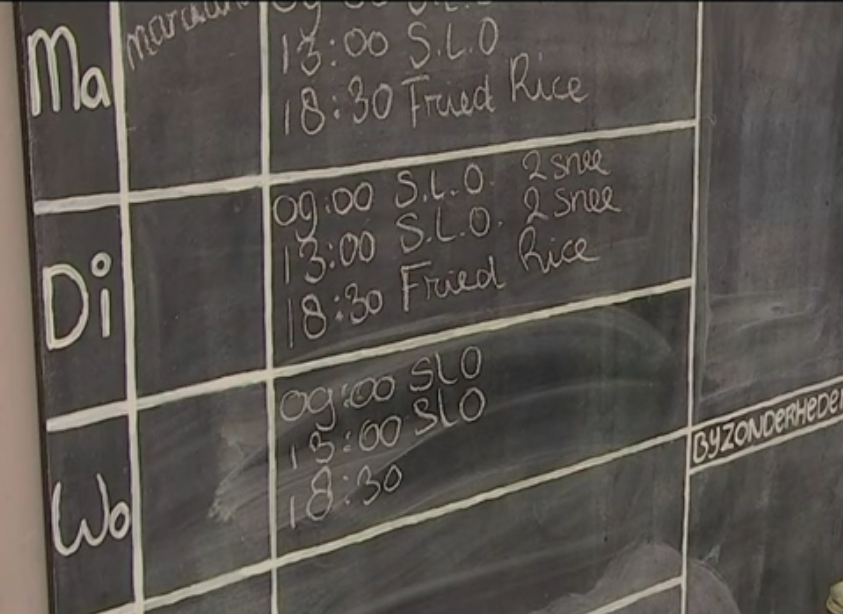 Ma
09:00 S.L.O
13:00 S.L.O
18:30 Fried Rice
Di
09:00 S.L.O. 2 snee
13:00 S.L.O. 2 snee
18:30 Fried Rice
Wo
09:00 SLO
13:00 SLO
18:30
BYZONDERHEDEN